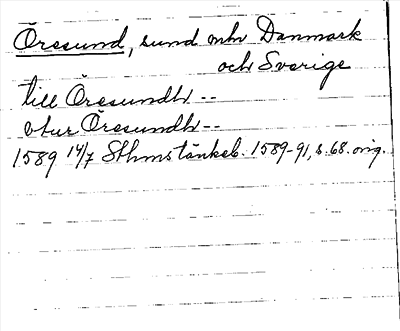 Öresund, sund mln Danmark
och Sverige
till Öresundh --
vtur Öresundh --
1589 14/7 Sthms tänkeb. 1589-91, s. 68. orig.